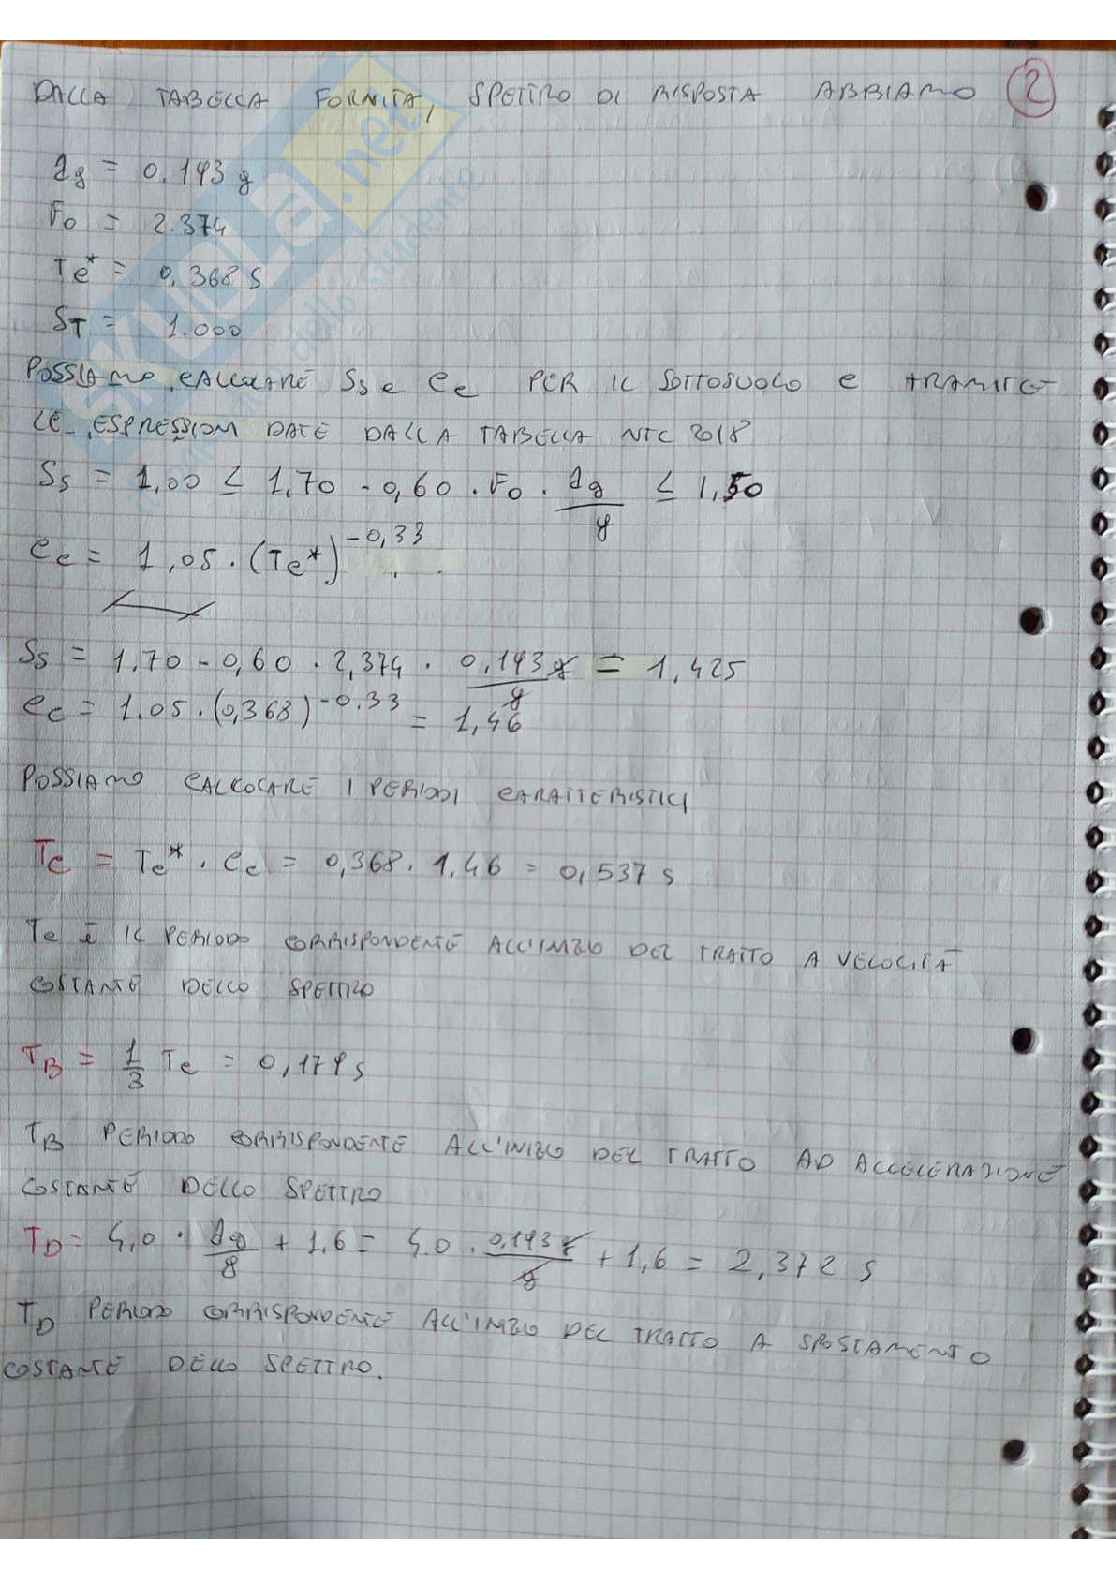 DALLA TABELLA FORNITA, SPETTRO DI RISPOSTA ABBIAMO 2
ag = 0.193 g
Fo = 2.374
Tc* = 0,368 s
ST = 1.000
POSSIAMO CALCOLARE Ss e Cc PER IL SOTTOSUOLO C TRAMITE
LE ESPRESSIONI DATE DALLA TABELLA NTC 2018
Ss = 1,00 ≤ 1,70 - 0,60 · Fo · ag/g ≤ 1,50
Cc = 1,05 · (Tc*)^-0,33
Ss = 1.70 - 0,60 · 2,374 · 0,193g/g = 1,425
Cc = 1.05 · (0,368)^-0.33 = 1,46
POSSIAMO CALCOLARE I PERIODI CARATTERISTICI
Tc = Tc* · Cc = 0,368 · 1,46 = 0,537 s
Tc è IL PERIODO CORRISPONDENTE ALL'INIZIO DEL TRATTO A VELOCITÀ
COSTANTE DELLO SPETTRO
TB = 1/3 Tc = 0,179 s
TB PERIODO CORRISPONDENTE ALL'INIZIO DEL TRATTO AD ACCELERAZIONE
COSTANTE DELLO SPETTRO
TD = 4,0 · ag/g + 1.6 = 4.0 · 0,193g/g + 1,6 = 2,372 s
TD PERIODO CORRISPONDENTE ALL'INIZIO DEL TRATTO A SPOSTAMENTO
COSTANTE DELLO SPETTRO.
SKUOLA.net